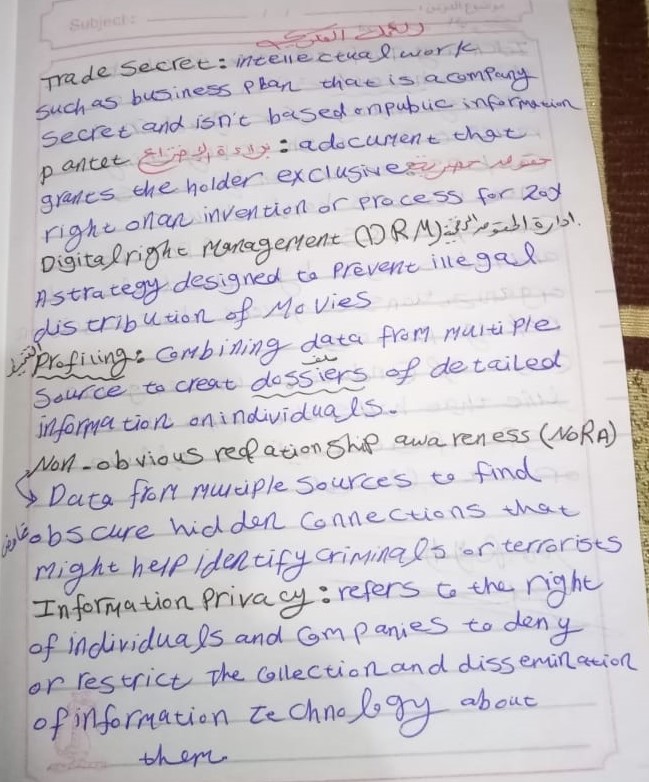 Subject:
موضوع الدرس:
Trade Secret: intellectual work
such as business plan that is a company
secret and isn't based on public information
pantet براءة الاختراع : a document that
grants the holder exclusive حقوق حصرية
right on an invention or process for 20y
Digital right Management (DRM): ادارة الحقوق الرقمية.
A strategy designed to prevent illegal
distribution of Movies
Profiling: Combining data from multiple
Source to creat dossiers of detailed
information on individuals.
Non-obvious relationship awareness (NORA)
Data from multiple sources to find
obscure hidden Connections that
might help identify criminals or terrorists
Information Privacy: refers to the right
of individuals and Companies to deny
or restrict the Collection and dissemination
of information technology about
them.